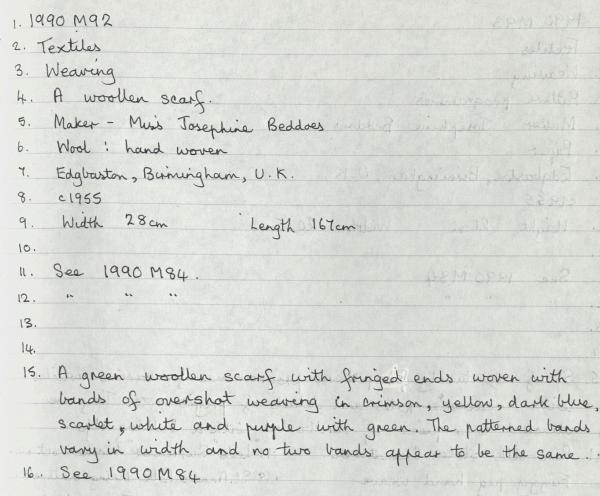 1. 1990 M92
2. Textiles
3. Weaving
4. A woollen scarf.
5. Maker - Miss Josephine Beddoes
6. Wool : hand woven
7. Edgbaston, Birmingham, U.K.
8. c1955
9. Width 28cm Length 167cm
10.
11. See 1990 M84.
12. " " "
13.
14.
15. A green woollen scarf with fringed ends woven with
bands of overshot weaving in crimson, yellow, dark blue,
scarlet, white and purple with green. The patterned bands
vary in width and no two bands appear to be the same.
16. See 1990 M84